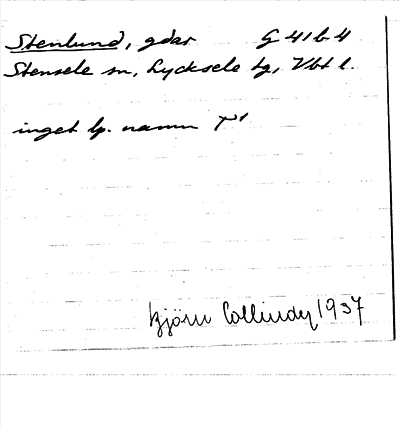 Stenlund, gdar G 41 b 4
Stensele sn, Lycksele tg, Vbt l.
inget lp. namn
Björn Collinder 1937